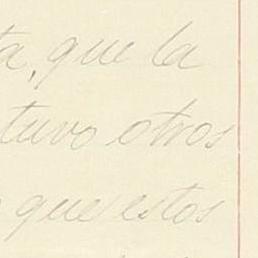 ta, que la
tuvo otros
que estos